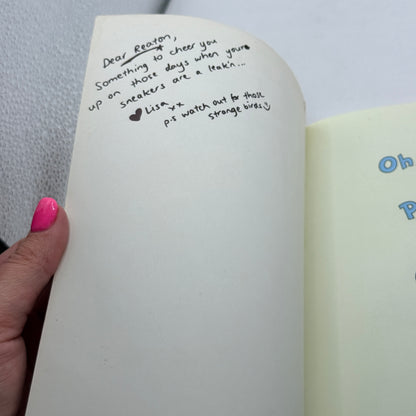 Dear Reaton,
Something to cheer you
up on those days when your
sneakers are a leak'n...
Lisa xx
p.s watch out for those
strange birds
Oh
P